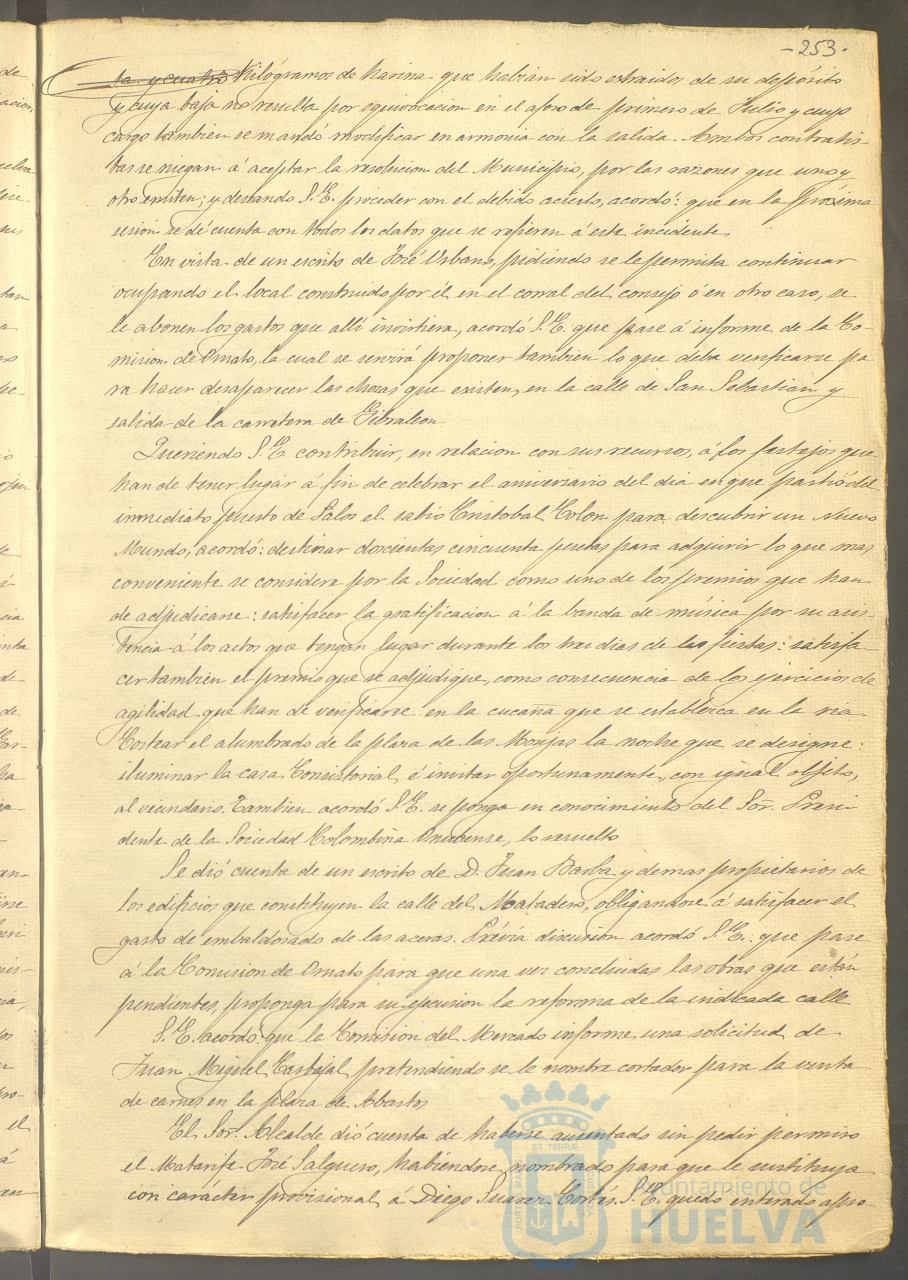 -253-
ta y cuatro Kilógramos de harina que habian sido extraidos de su depósito
y cuya baja no resulta por equivocacion en el aforo de primero de Julio y cuyo
cargo tambien se mandó modificar en armonia con la salida. Ambos contratis-
tas se niegan á aceptar la resolucion del Municipio, por las razones que uno y
otro emiten; y deseando S.E. proceder con el debido acierto, acordó: que en la próxima
sesion se dé cuenta con todos los datos que se refieren á este incidente.
En vista de un escrito de José Urbano, pidiendo se le permita continuar
ocupando el local construido por él en el corral del consejo ó en otro caso, se
le abonen los gastos que allí invirtiera, acordó S.E. que pase á informe de la Co-
mision de Ornato, la cual se servirá proponer tambien lo que deba verificarse pa
ra hacer desaparecer las chozas que existen, en la calle de San Sebastian y
salida de la carretera de Gibraleon.
Queriendo S.E. contribuir, en relacion con sus recursos, á los festejos que
han de tener lugar á fin de celebrar el aniversario del dia en que partió del
inmediato puerto de Palos el sabio Cristobal Colon para descubrir un Nuevo
Mundo, acordó: destinar doscientas cincuenta pesetas para adquirir lo que mas
conveniente se considere por la Sociedad como uno de los premios que han
de adjudicarse: satisfacer la gratificacion á la banda de música por su asis
tencia á los actos que tengan lugar durante los tres dias de las fiestas: satisfa-
cer tambien el premio que se adjudique, como consecuencia de los ejercicios de
agilidad que han de verificarse en la cucaña que se establezca en la ria
Costear el alumbrado de la plaza de las Monjas la noche que se designe:
iluminar la casa Consistorial é invitar oportunamente, con igual objeto,
al vecindario. Tambien acordó S.E. se ponga en conocimiento del Sor. Presi
dente de la Sociedad Colombina Onubense, lo resuelto
Se dió cuenta de un escrito de D. Juan Barba y demas propietarios de
los edificios que constituyen la calle del Matadero, obligandose á satisfacer el
gasto de embaldosado de las aceras. Prévia discusion acordó S.E. que pase
á la Comision de Ornato para que una vez concluidas las obras que están
pendientes, proponga para su ejecucion la reforma de la indicada calle
S.E. acordó que la Comision del Mercado informe una solicitud de
Juan Miguel Carbajal pretendiendo se le nombre cortador para la venta
de carnes en la plaza de Abastos
El Sor. Alcalde dió cuenta de haberse ausentado sin pedir permiso
el Matarife José Salguero, habiéndose nombrado para que le sustituya
con carácter provisional, á Diego Suarez Cortés. S.E. quedó enterado apro-
Ayuntamiento de
HUELVA